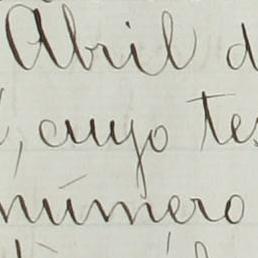 Abril d
, cuyo tes
número